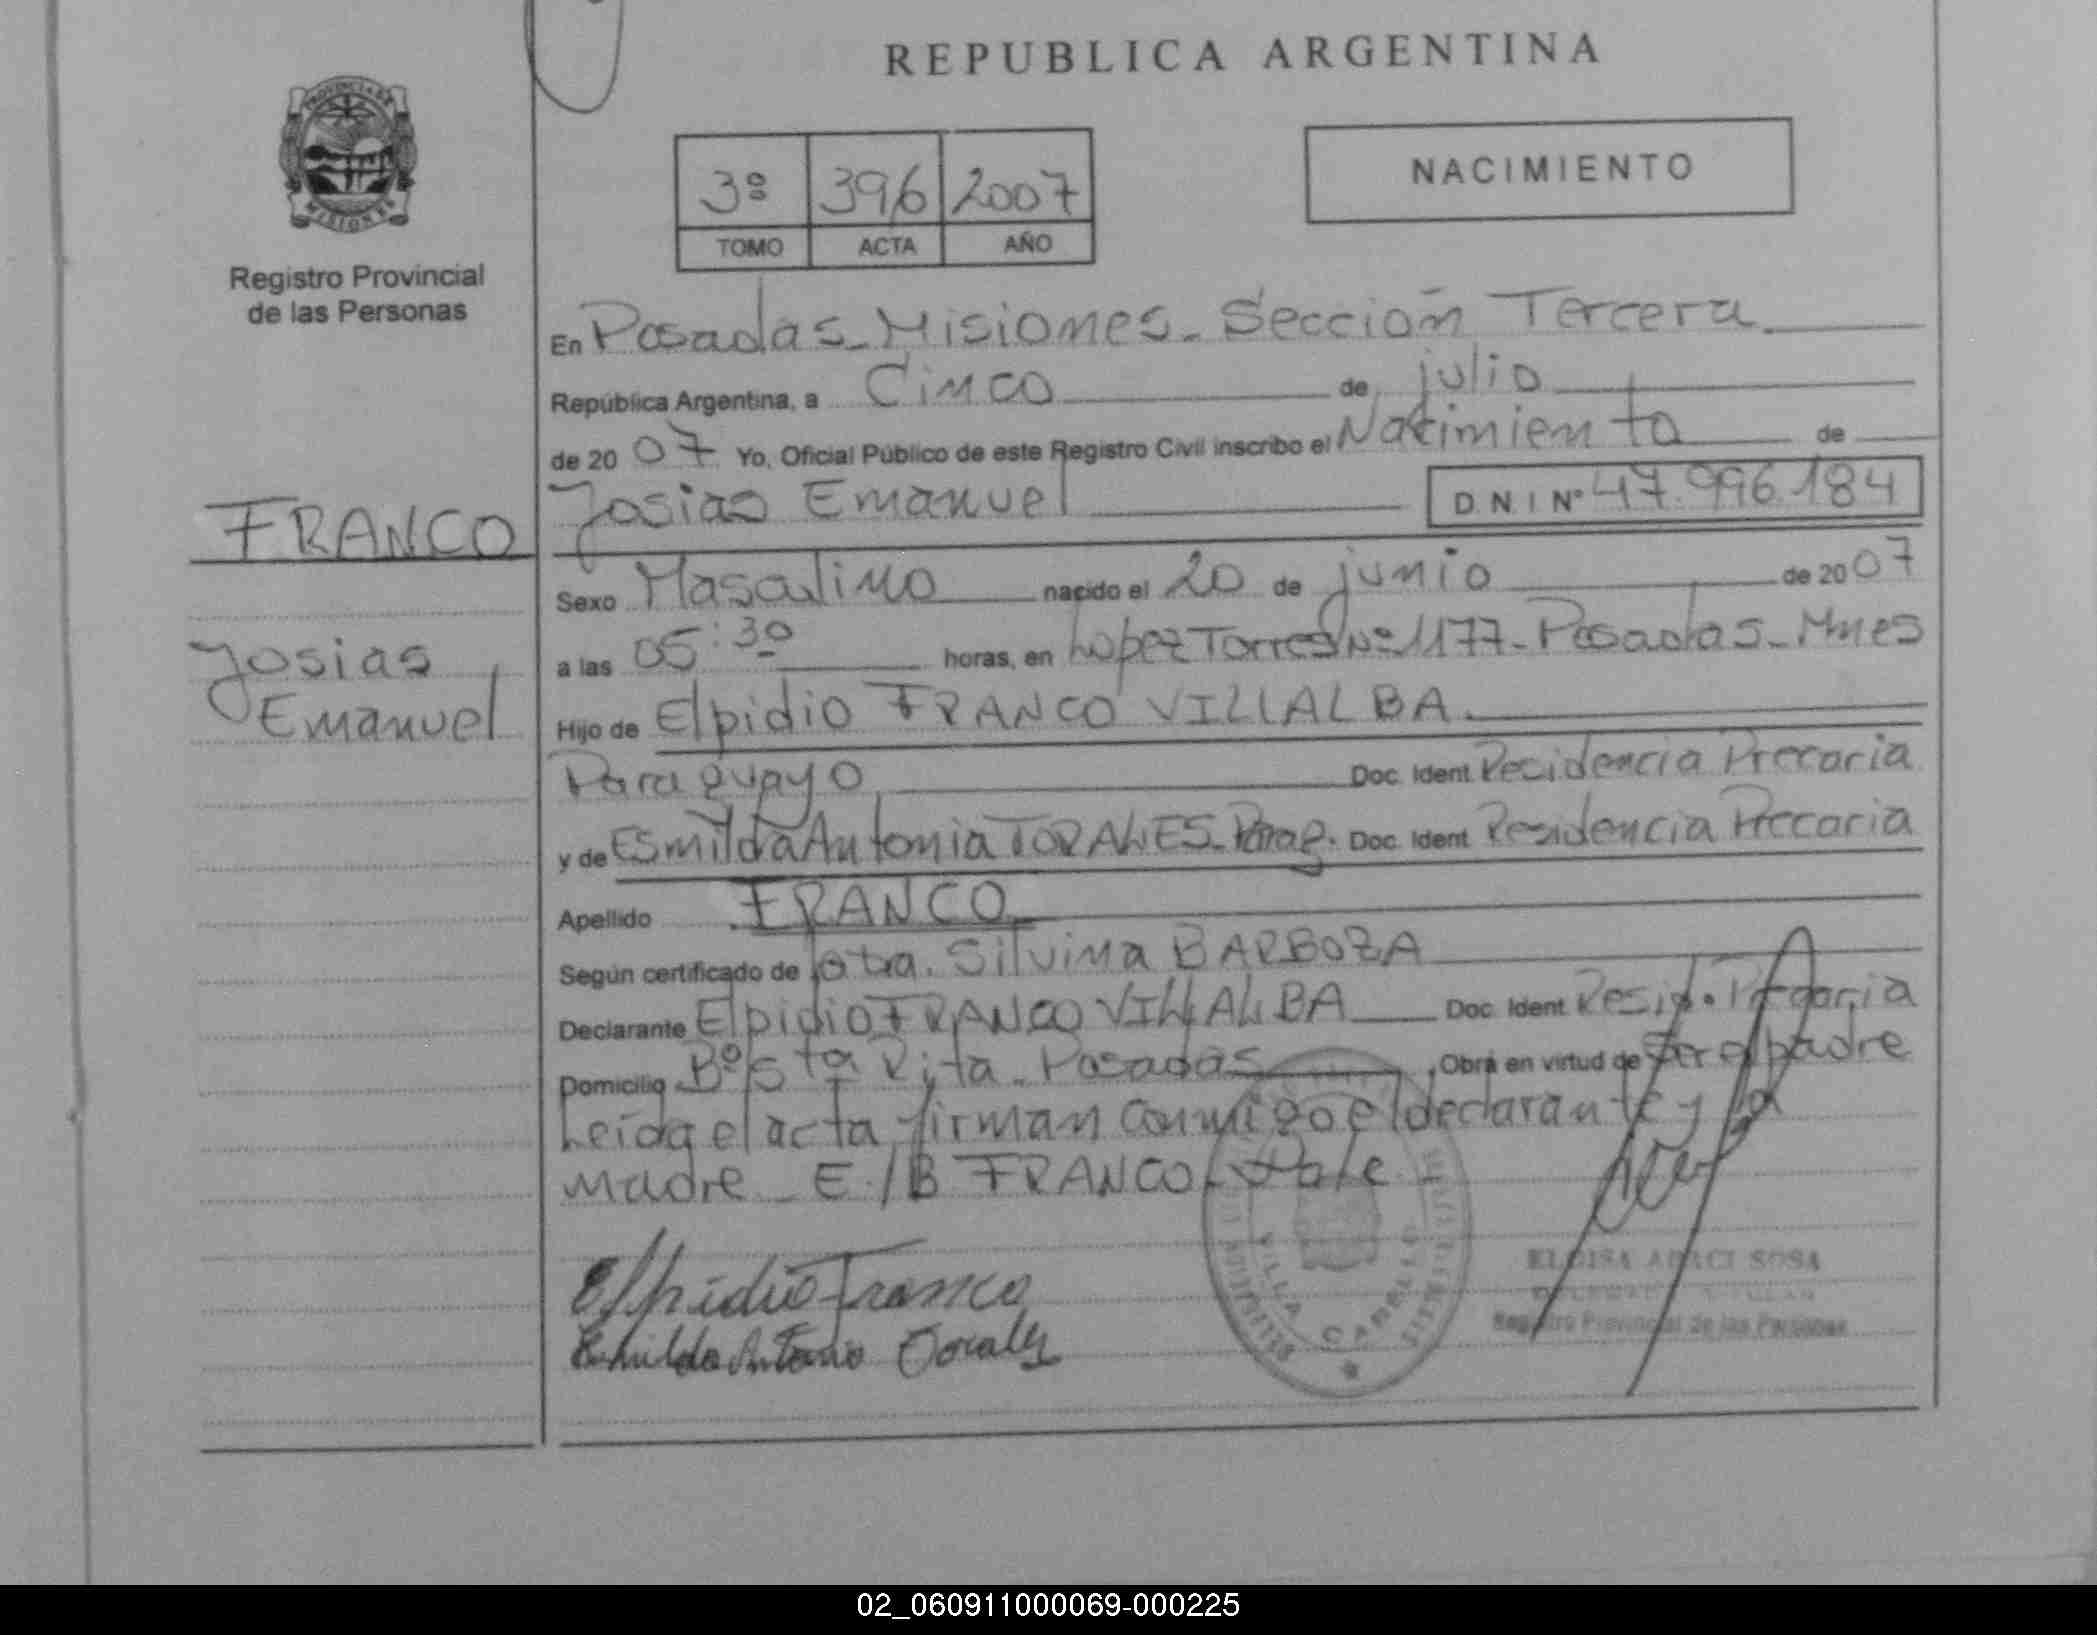 REPUBLICA ARGENTINA
PROVINCIA DE
MISIONES
Registro Provincial
de las Personas
3º 396 2007
TOMO ACTA AÑO
NACIMIENTO
En Posadas - Misiones - Sección Tercera
República Argentina, a Cinco de julio
de 2007 Yo, Oficial Público de este Registro Civil inscribo el Nacimiento de
FRANCO
Josias Emanuel D N I Nº 47.996.184
Josias
Emanuel
Sexo Masculino nacido el 20 de junio de 2007
a las 05:30 horas, en Lopez Torres Nº 1177 - Posadas - Mnes
Hijo de Elpidio FRANCO VILLALBA
Paraguayo Doc. Ident. Residencia Precaria
y de Esmilda Antonia TORALES - Parag. Doc. Ident. Residencia Precaria
Apellido FRANCO
Según certificado de obta. Silvina BARBOZA
Declarante Elpidio FRANCO VILLALBA Doc. Ident. Resid. Precaria
Domicilio Bº Sta Rita - Posadas Obra en virtud de ser el padre
Leida el acta firman conmigo el declarante y la
madre - E/B FRANCO - Vale
Elpidio Franco
Esmilda Antonia Torales
VILLA CABELLO
ELOISA ARACI SOSA
Registro Provincial de las Personas
02_060911000069-000225